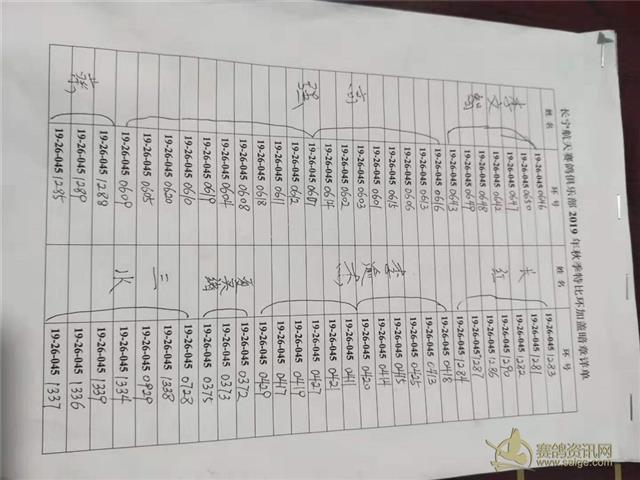 长宁航天赛鸽俱乐部2019年秋季特比环加盖暗章详单
姓名 环号 姓名 环号
19-26-045 0646 19-26-045 1283
19-26-045 0650 19-26-045 1281
李 19-26-045 0647 19-26-045 1282
文 19-26-045 0642 19-26-045 1290
19-26-045 0648 红 19-26-045 1286
19-26-045 0649 19-26-045 1287
19-26-045 0643 19-26-045 1284
19-26-045 0616 19-26-045 0418
19-26-045 0613 19-26-045 0413
19-26-045 0606 李 19-26-045 0425
19-26-045 0615 渝 19-26-045 0415
19-26-045 0601 19-26-045 0414
高 19-26-045 0603 19-26-045 0420
19-26-045 0602 19-26-045 0411
19-26-045 0614 19-26-045 0421
强 19-26-045 0607 19-26-045 0427
19-26-045 0612 19-26-045 0419
19-26-045 0611 19-26-045 0417
19-26-045 0618 19-26-045 0429
19-26-045 0608 夏 19-26-045 0372
19-26-045 0604 19-26-045 0373
19-26-045 0619 19-26-045 0375
19-26-045 0610 19-26-045 0728
19-26-045 0620 二 19-26-045 1338
19-26-045 0605 19-26-045 0929
19-26-045 0609 水 19-26-045 1334
19-26-045 1288 19-26-045 1339
19-26-045 1289 19-26-045 1336
19-26-045 1285 19-26-045 1337
赛鸽资讯网
www.saige.com